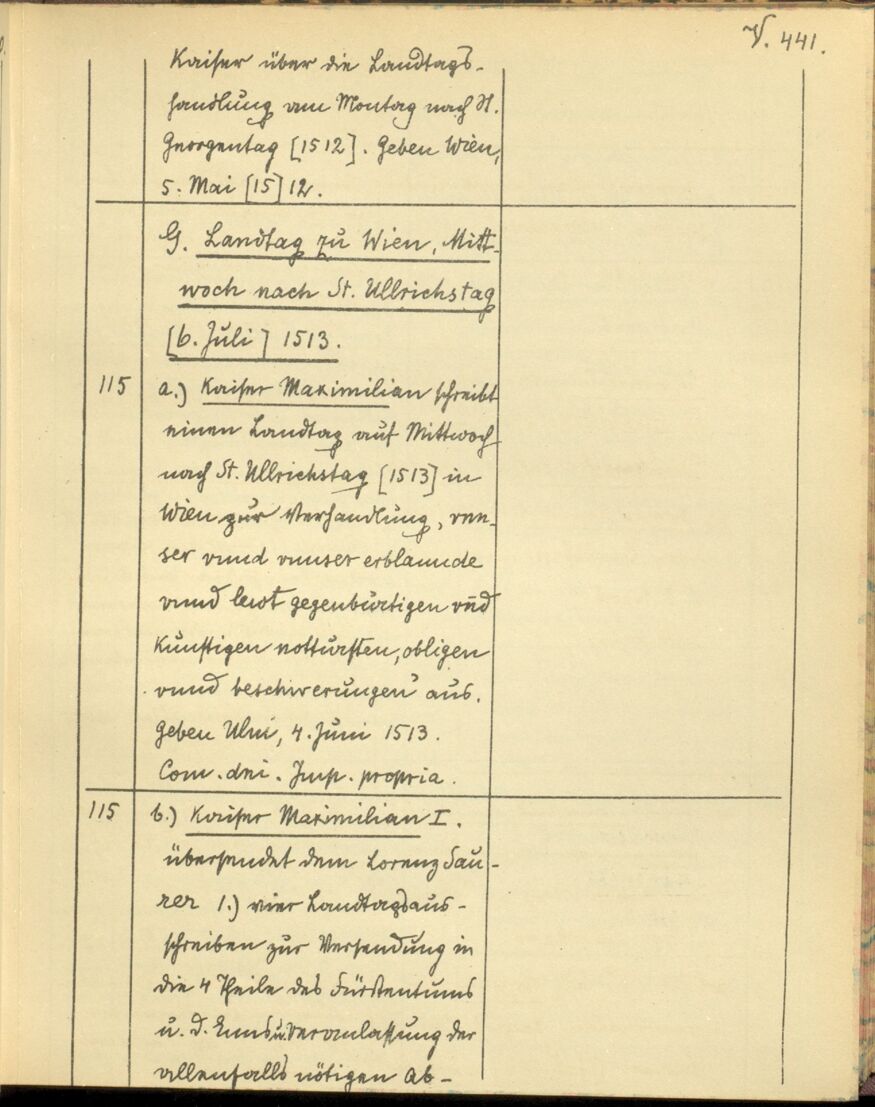 V. 441.
Kaiser über die Landtags-
handlung am Montag nach St.
Georgentag [1512]. Geben Wien,
5. Mai [15]12.
G. Landtag zu Wien, Mitt-
woch nach St. Ullrichstag
[6. Juli] 1513.
115 a.) Kaiser Maximilian schreibt
einen Landtag auf Mittwoch
nach St. Ullrichstag [1513] in
Wien zur Verhandlung, vnn-
ser vnnd vnnser erblannde
vnnd lewt gegenbürtigen vnd
kunftigen notturften, obligen
vnnd beschwerungen" aus.
Geben Ulm, 4. Juni 1513.
Com. dni. Imp. propria.
115 b.) Kaiser Maximilian I.
übersendet dem Lorenz Sau-
rer 1.) vier Landtagsaus-
schreiben zur Versendung in
die 4 Theile des Fürstentums
u. d. Enns u. Veranlassung der
allenfalls nötigen Ab-